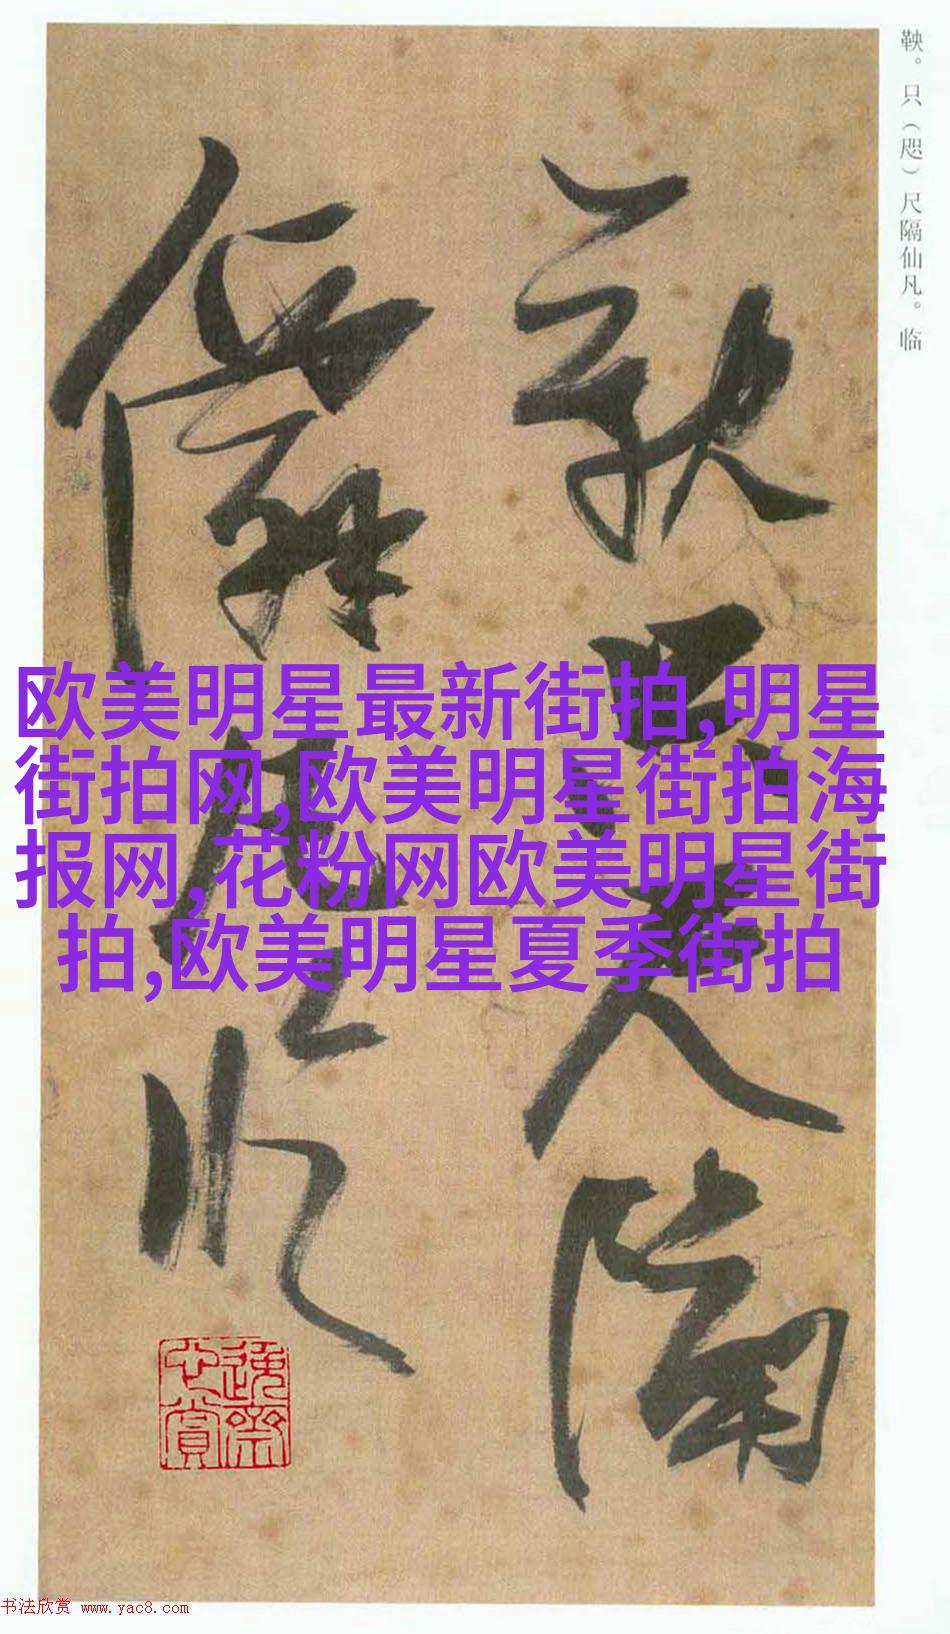 鞅。只（咫）尺隔仙凡。临
鞅只尺隔
仙凡临
欧美明星最新街拍,明星
街拍网,欧美明星街拍海
报网,花粉网欧美明星街
拍,欧美明星夏季街拍
书法欣赏 www.yac8.com